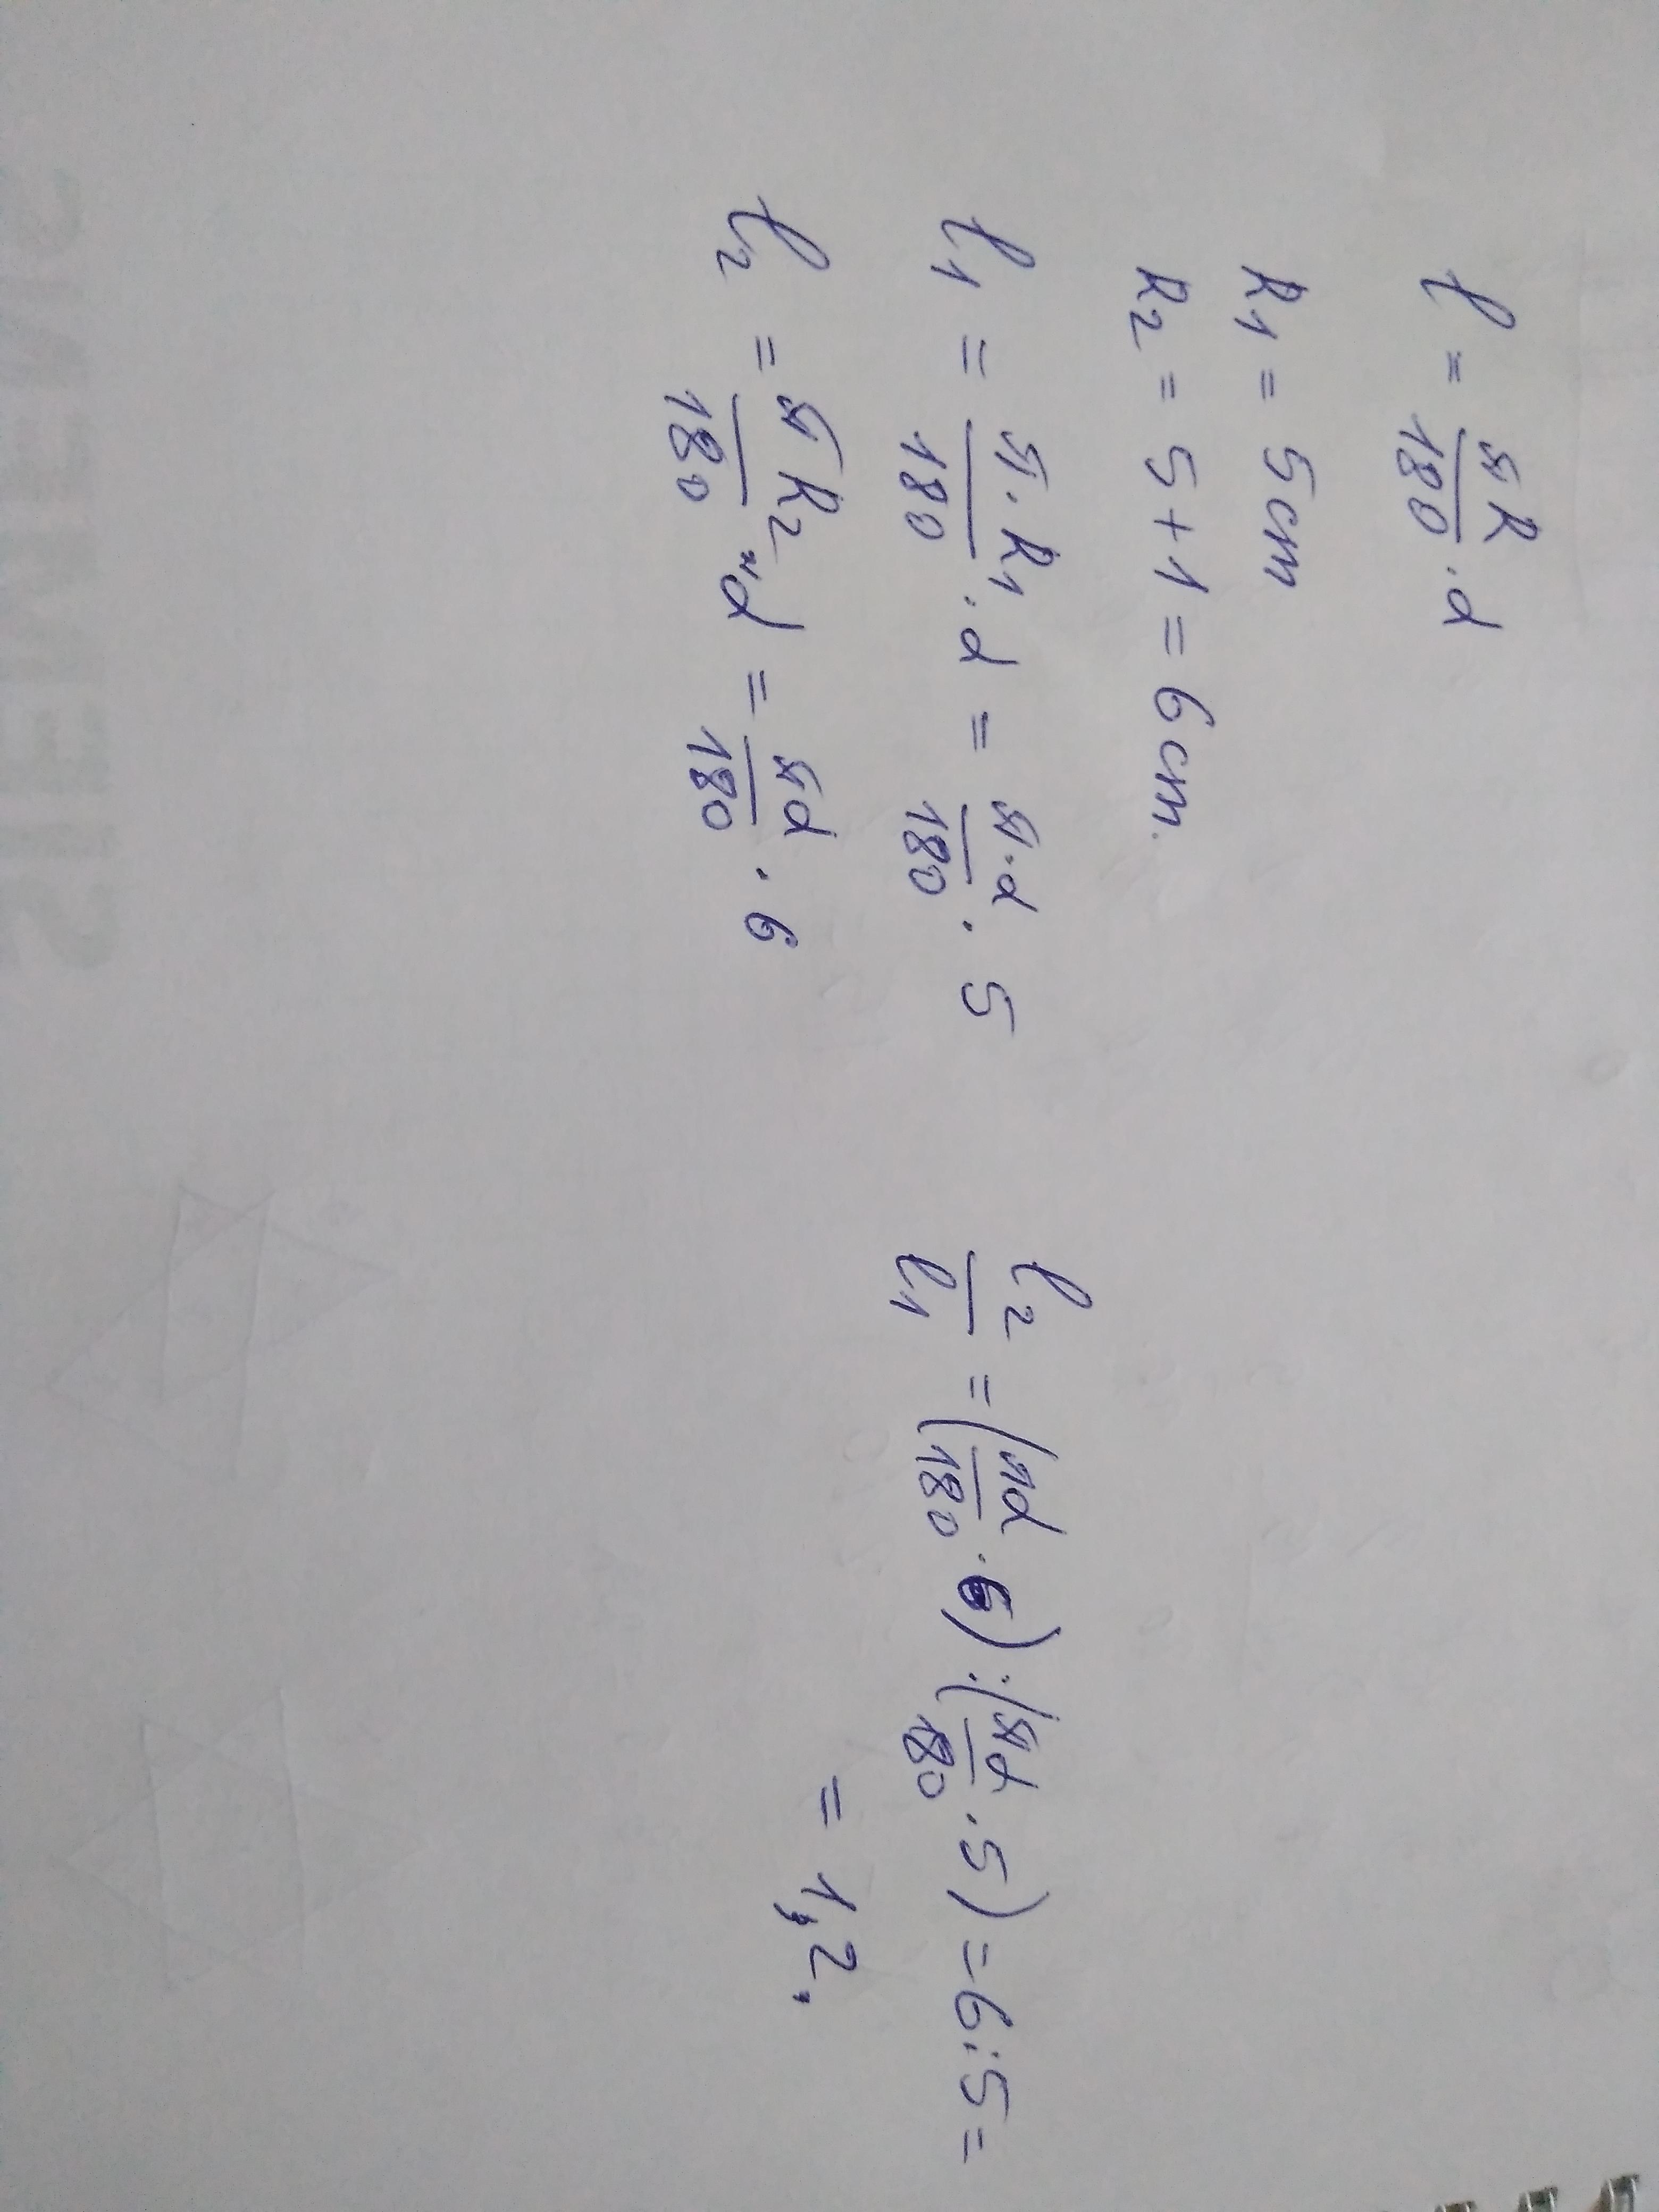 l = πR/180 · α
R1 = 5 cm
R2 = 5 + 1 = 6 cm.
l1 = π·R1/180 · α = π·α/180 · 5
l2 = πR2/180 · α = πα/180 · 6
l2/l1 = (πα/180 · 6) : (πα/180 · 5) = 6 : 5 =
= 1,2.
SIEMENS